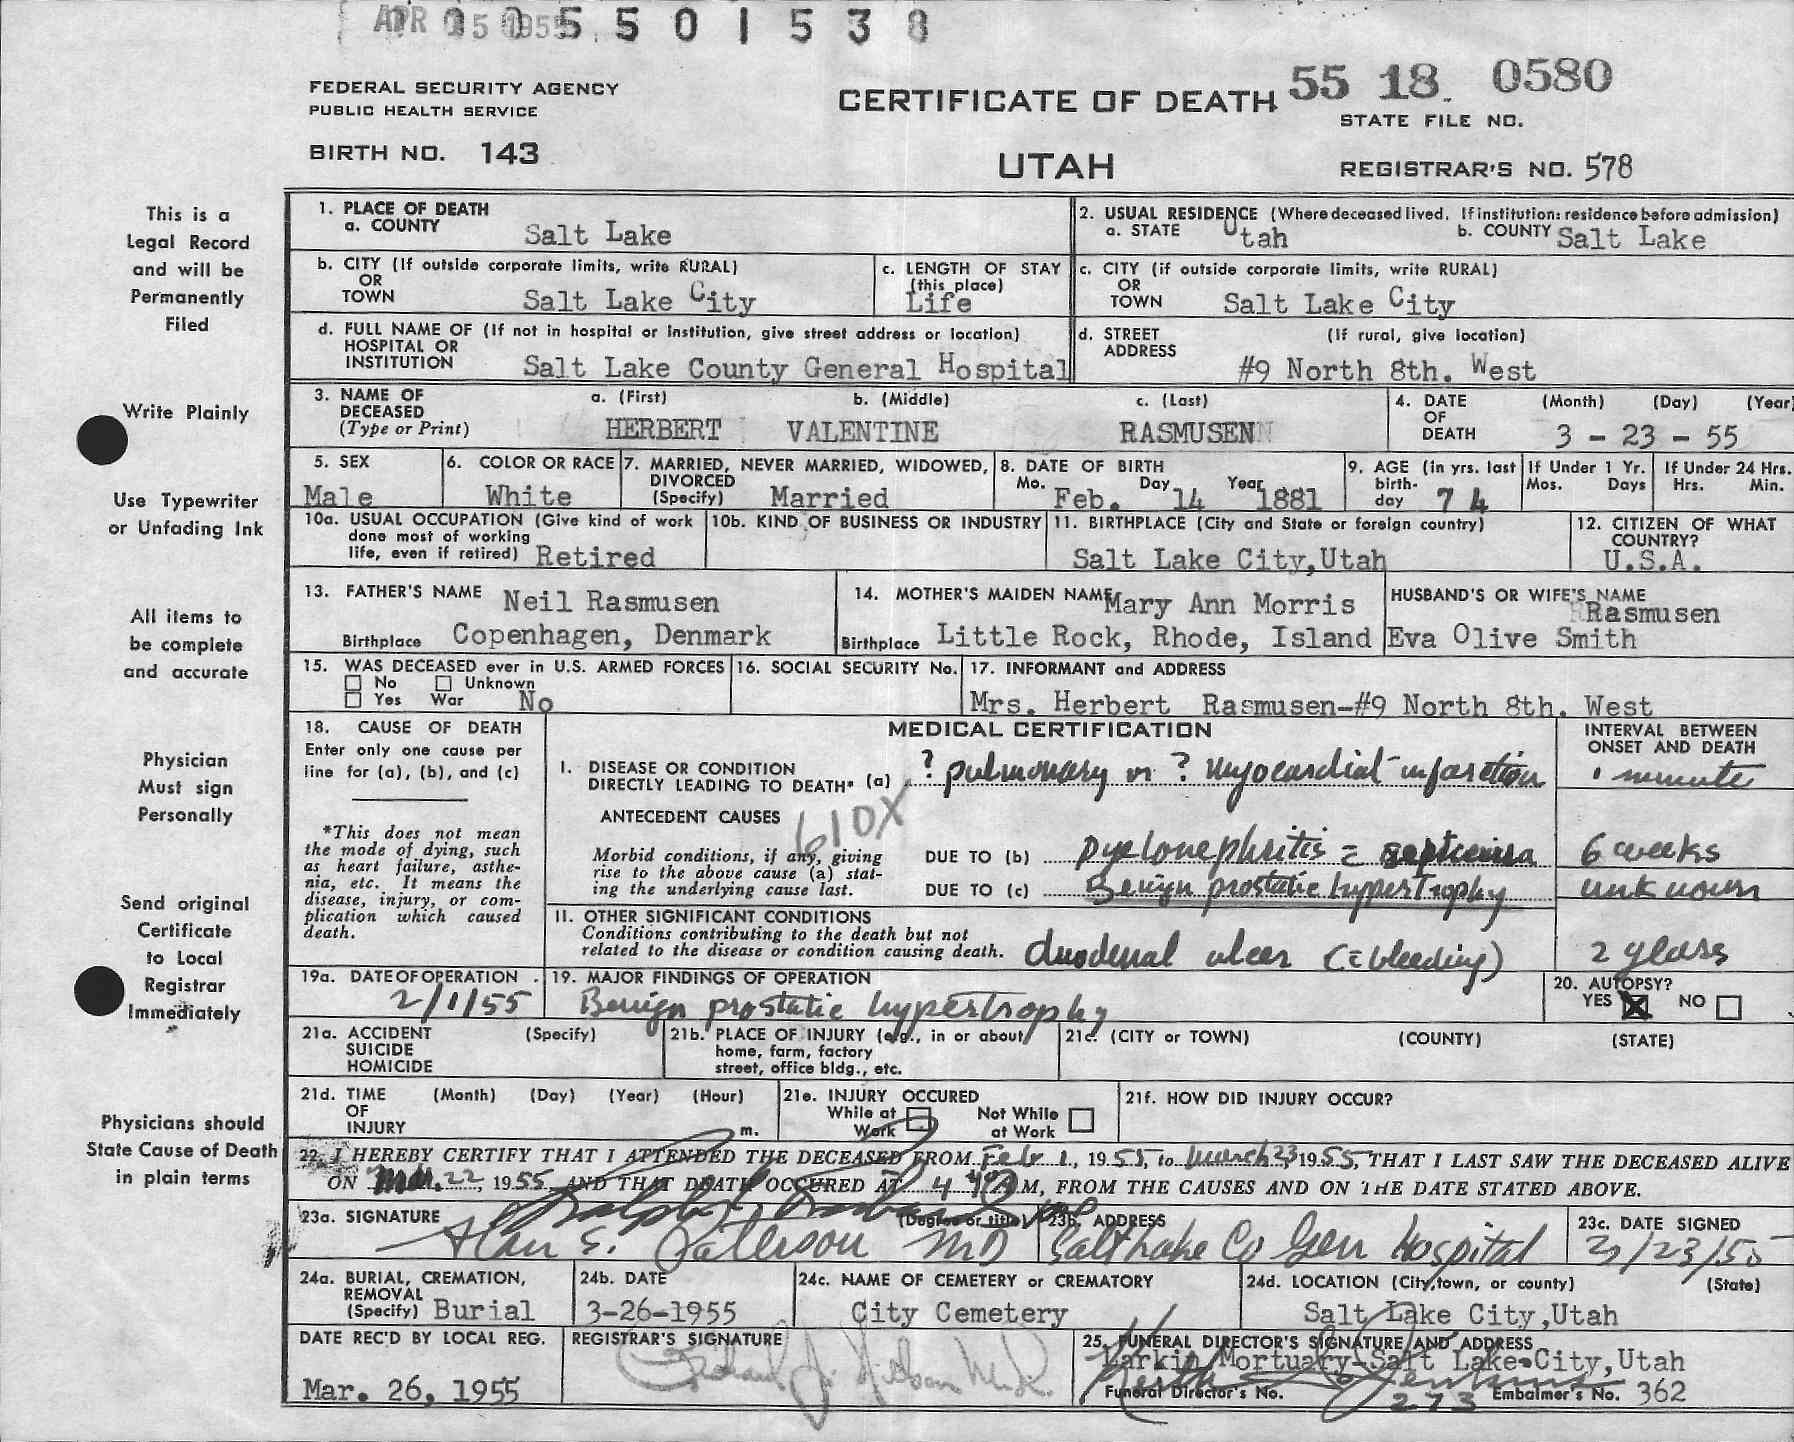 APR 15 1955
005501538
FEDERAL SECURITY AGENCY
PUBLIC HEALTH SERVICE
BIRTH NO. 143
CERTIFICATE OF DEATH
UTAH
55 18 0580
STATE FILE NO.
REGISTRAR'S NO. 578
This is a
Legal Record
and will be
Permanently
Filed
Write Plainly
Use Typewriter
or Unfading Ink
All items to
be complete
and accurate
Physician
Must sign
Personally
Send original
Certificate
to Local
Registrar
Immediately
Physicians should
State Cause of Death
in plain terms
1. PLACE OF DEATH
a. COUNTY Salt Lake
2. USUAL RESIDENCE (Where deceased lived. If institution: residence before admission)
a. STATE Utah b. COUNTY Salt Lake
b. CITY (If outside corporate limits, write RURAL)
OR
TOWN Salt Lake City
c. LENGTH OF STAY
(this place)
Life
c. CITY (if outside corporate limits, write RURAL)
OR
TOWN Salt Lake City
d. FULL NAME OF (If not in hospital or institution, give street address or location)
HOSPITAL OR
INSTITUTION Salt Lake County General Hospital
d. STREET (If rural, give location)
ADDRESS #9 North 8th. West
3. NAME OF a. (First) b. (Middle) c. (Last)
DECEASED
(Type or Print) HERBERT VALENTINE RASMUSEN
4. DATE (Month) (Day) (Year)
OF
DEATH 3 - 23 - 55
5. SEX
Male
6. COLOR OR RACE
White
7. MARRIED, NEVER MARRIED, WIDOWED,
DIVORCED
(Specify) Married
8. DATE OF BIRTH
Mo. Day Year
Feb. 14 1881
9. AGE (in yrs. last
birth-
day 74
If Under 1 Yr.
Mos. Days
If Under 24 Hrs.
Hrs. Min.
10a. USUAL OCCUPATION (Give kind of work
done most of working
life, even if retired) Retired
10b. KIND OF BUSINESS OR INDUSTRY
11. BIRTHPLACE (City and State or foreign country)
Salt Lake City,Utah
12. CITIZEN OF WHAT
COUNTRY?
U.S.A.
13. FATHER'S NAME Neil Rasmusen
Birthplace Copenhagen, Denmark
14. MOTHER'S MAIDEN NAME Mary Ann Morris
Birthplace Little Rock, Rhode, Island
HUSBAND'S OR WIFE'S NAME
Rasmusen
Eva Olive Smith
15. WAS DECEASED ever in U.S. ARMED FORCES
No Unknown
Yes War No
16. SOCIAL SECURITY No.
17. INFORMANT and ADDRESS
Mrs. Herbert Rasmusen-#9 North 8th. West
18. CAUSE OF DEATH
Enter only one cause per
line for (a), (b), and (c)
*This does not mean
the mode of dying, such
as heart failure, asthe-
nia, etc. It means the
disease, injury, or com-
plication which caused
death.
MEDICAL CERTIFICATION
INTERVAL BETWEEN
ONSET AND DEATH
I. DISEASE OR CONDITION
DIRECTLY LEADING TO DEATH* (a) ? pulmonary or ? myocardial infarction 1 minute
ANTECEDENT CAUSES
610X
Morbid conditions, if any, giving
rise to the above cause (a) stat-
ing the underlying cause last.
DUE TO (b) pyelonephritis c septicemia 6 weeks
DUE TO (c) Benign prostatic hypertrophy unknown
II. OTHER SIGNIFICANT CONDITIONS
Conditions contributing to the death but not
related to the disease or condition causing death. duodenal ulcer (c bleeding) 2 years
19a. DATE OF OPERATION
2/1/55
19. MAJOR FINDINGS OF OPERATION
Benign prostatic hypertrophy
20. AUTOPSY?
YES X NO
21a. ACCIDENT (Specify)
SUICIDE
HOMICIDE
21b. PLACE OF INJURY (e.g., in or about
home, farm, factory
street, office bldg., etc.
21c. (CITY or TOWN) (COUNTY) (STATE)
21d. TIME (Month) (Day) (Year) (Hour)
OF
INJURY m.
21e. INJURY OCCURED
While at Work Not While at Work
21f. HOW DID INJURY OCCUR?
22. I HEREBY CERTIFY THAT I ATTENDED THE DECEASED FROM Feb 1, 1955, to March 23 1955, THAT I LAST SAW THE DECEASED ALIVE
ON Mar. 22, 1955, AND THAT DEATH OCCURED AT 4 40 A M, FROM THE CAUSES AND ON THE DATE STATED ABOVE.
23a. SIGNATURE (Degree or title)
Alan S. Paterson MD
23b. ADDRESS
Salt Lake Co Gen Hospital
23c. DATE SIGNED
3/23/55
24a. BURIAL, CREMATION,
REMOVAL
(Specify) Burial
24b. DATE
3-26-1955
24c. NAME OF CEMETERY or CREMATORY
City Cemetery
24d. LOCATION (City,town, or county) (State)
Salt Lake City,Utah
DATE REC'D BY LOCAL REG.
Mar. 26, 1955
REGISTRAR'S SIGNATURE
25. FUNERAL DIRECTOR'S SIGNATURE AND ADDRESS
Larkin Mortuary-Salt Lake City,Utah
Funeral Director's No. 273 Embalmer's No. 362